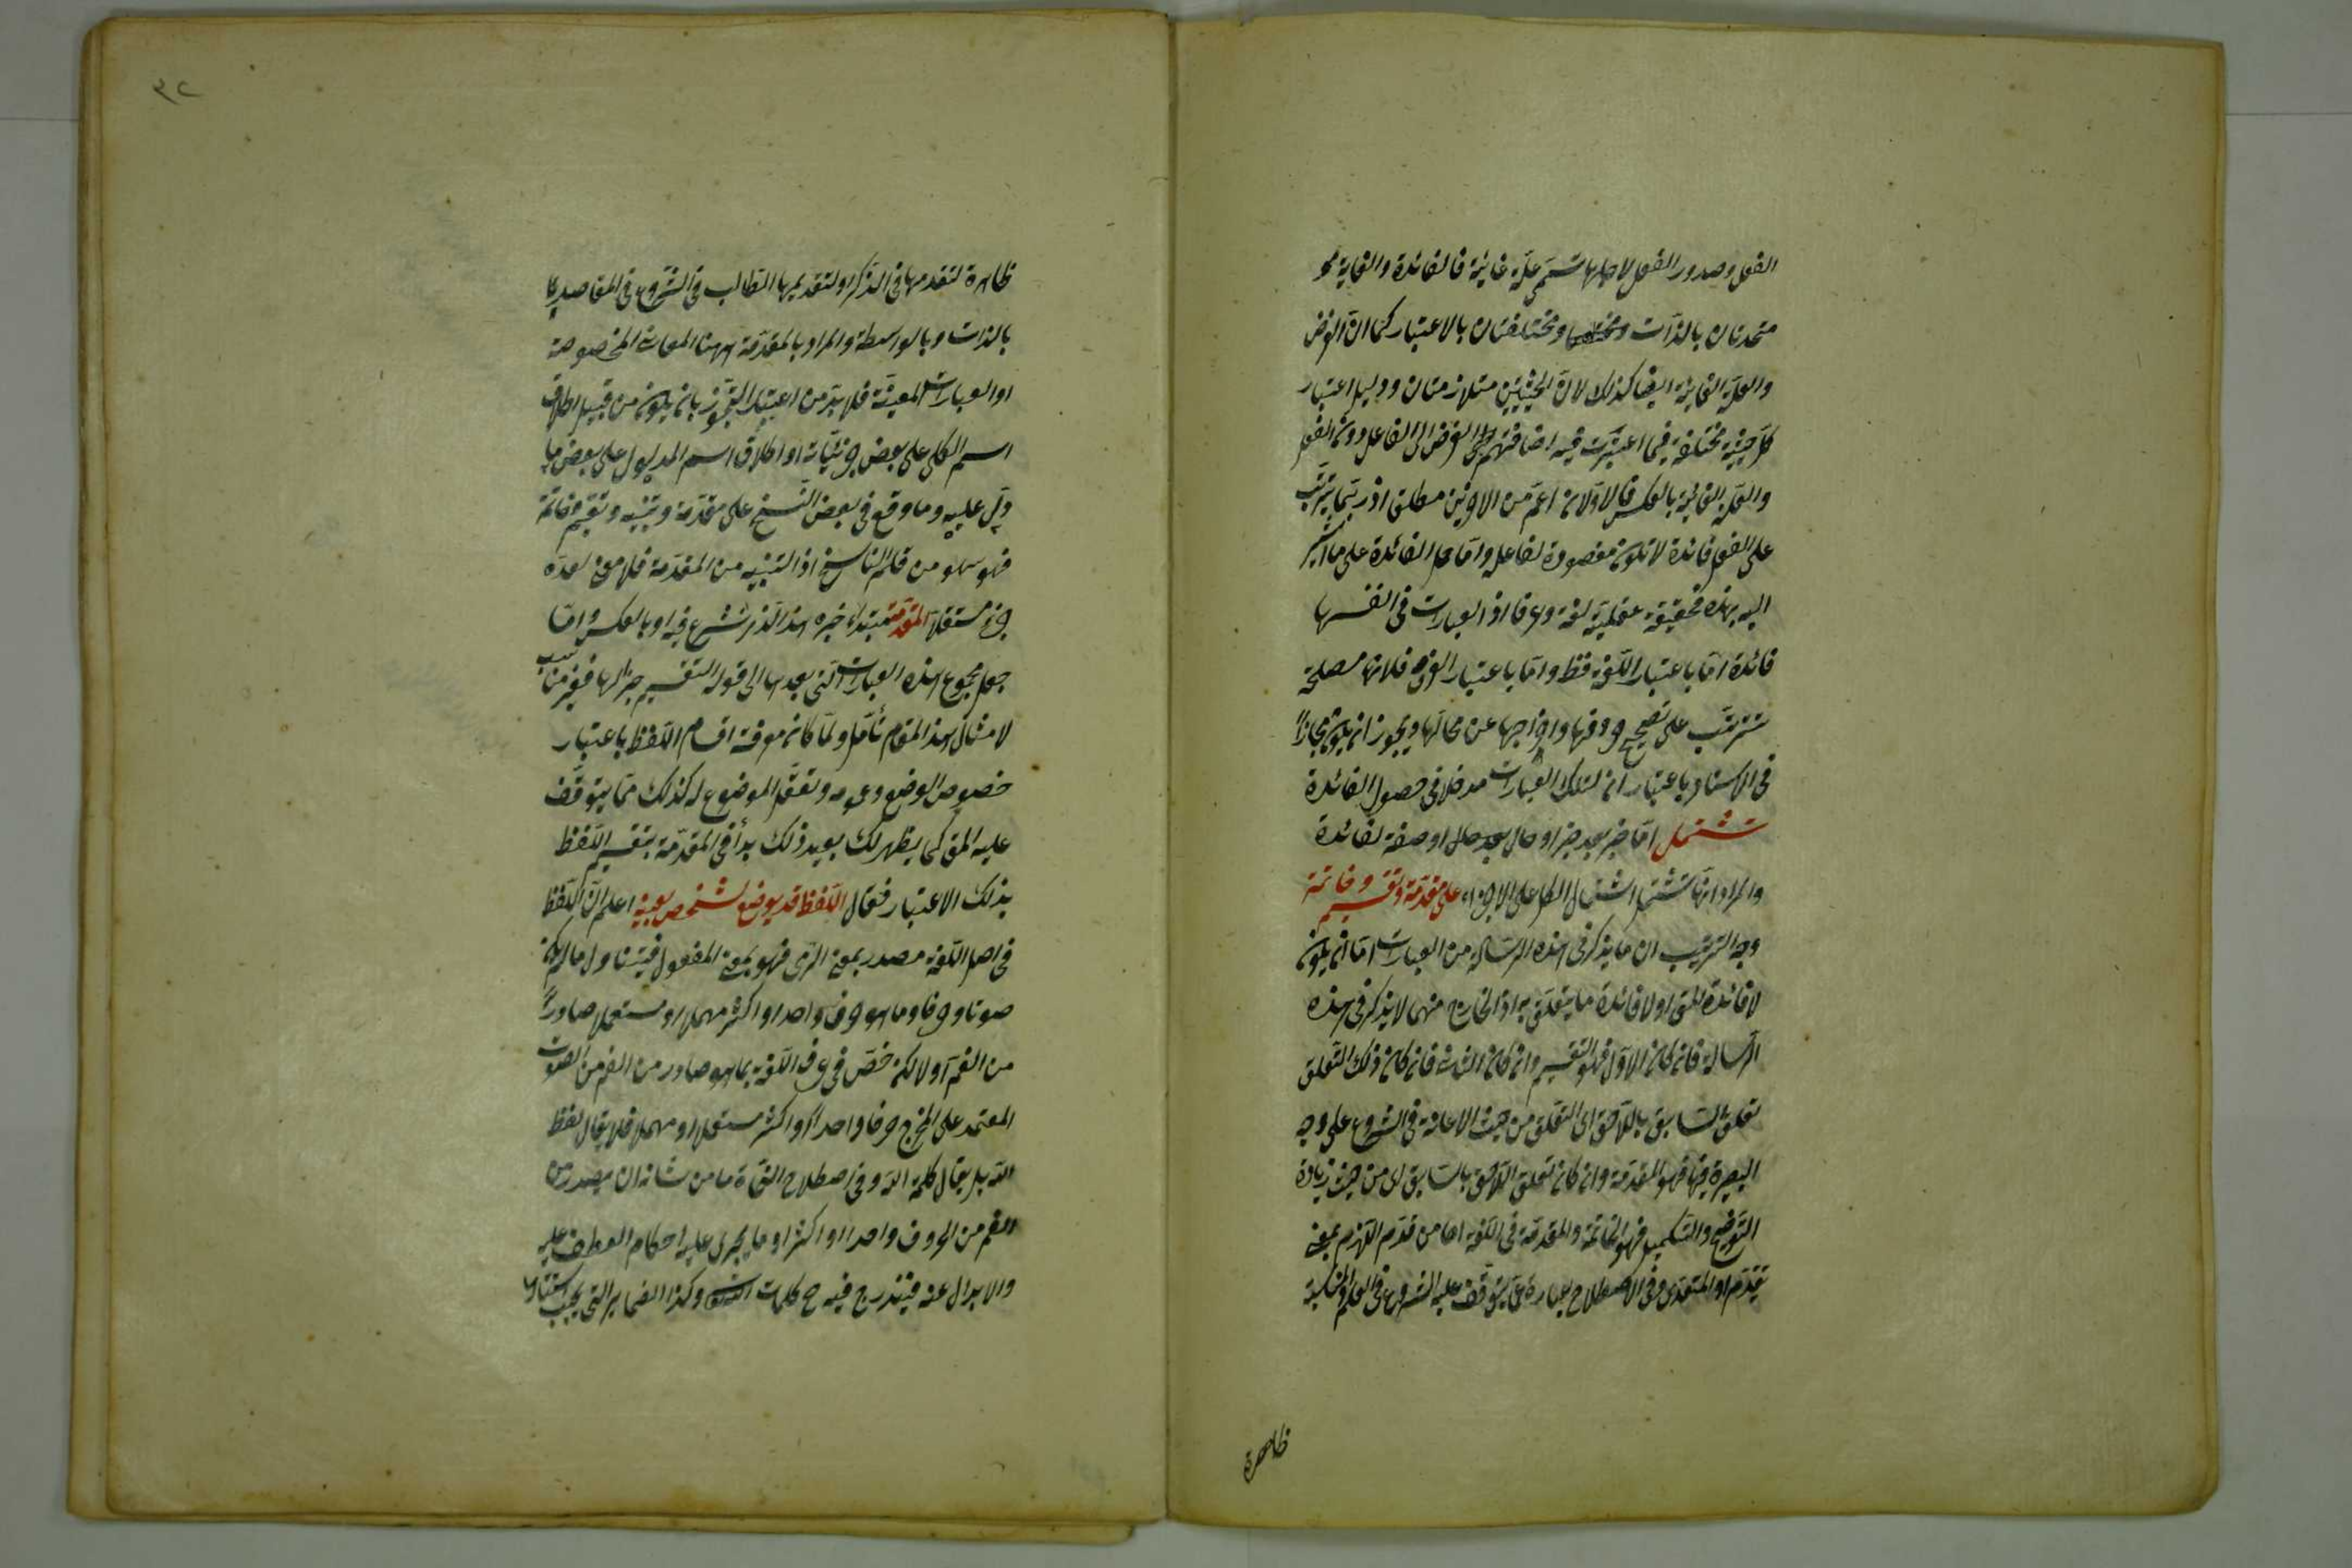 الفعل وصدور الفعل لاجلها تسمى علة غائية فالفائدة والغاية
متحدتان بالذات ومختلفتان بالاعتبار كما ان الغرض
والعلة الغائية ايضا كذلك لان الحيثيتين متلازمتان ودليل اعتبار
كل حيثية مختلفة فيما اعتبرت فيه اضافتهم الغرض الى الفاعل دون الفعل
والعلة الغائية بالعكس فالاولان اعم من الاخيرين مطلقا اذ ربما يترتب
على الفعل فائدة لا تكون مقصودة لفاعله واما حمل الفائدة على ما اشير
اليه بهذه فحقيقة عقلية لغة وعرفا اذ العبارات في انفسها
فائدة اما باعتبار اللغة فقط واما باعتبار العرف فلانها مصلحة
تترتب على تصحيح حروفها واخراجها عن محالها ويجوز ان يكون مجازا
في الاسناد باعتبار ان لتلك العبارات مدخلا في حصول الفائدة
تشتمل اما خبر بعد خبر او حال بعد حال او صفة لفائدة
والمراد انها تشتمل اشتمال الكل على الاجزاء على مقدمة وتقسيم وخاتمة
وجه الترتيب ان ما يذكر في هذه الرسالة من العبارات اما ان يكون
لافائدة المق او لافائدة ما يتعلق به اذ الخارج منهما لا يذكر في هذه
الرسالة فان كان الاول فهو التقسيم وان كان الثاني فان كان ذلك التعلق
تعلق السابق باللاحق اى التعلق من حيث الاعانة في الشروع على وجه
البصيرة فيها فهو المقدمة وان كان تعلق اللاحق بالسابق اى من حيث زيادة
التوضيح والتكميل فهو الخاتمة والمقدمة في اللغة اما من قدم اللازم بمعنى
تقدم او المتعدى وفي الاصطلاح عبارة عما يتوقف عليه الشروع في العلم والمناسبة
ظاهرة
٣٢
ظاهرة لتقدمها في الذكر او لتقديمها الطالب في الشروع في المقاصد
بالذات وبالواسطة والمراد بالمقدمة ههنا المعاني المخصوصة
او العبارات المعينة فلا بد من اعتبار التجوز بان يكون من قبيل اطلاق
اسم الكلى على بعض جزئياته او اطلاق اسم المدلول على بعض ما
دل عليه وما وقع في بعض النسخ على مقدمة وتنبيه وتقسيم وخاتمة
فهو سهو من قلم الناسخ اذ التنبيه من المقدمة فلا معنى لعده
جزء مستقلا المقدمة مبتداء خبره هذا الذى نشرع فيه او بالعكس واما
جعل مجموع هذه العبارات التى بعدها الى قوله التقسيم خبرا لها فغير مناسب
لامثال هذا المقام تأمل ولما كان معرفة اقسام اللفظ باعتبار
خصوص الوضع وعمومه وتعقل الموضوع له كذلك مما يتوقف
عليه المق كما يظهر لك بعيد ذلك بدأ في المقدمة بتقسيم اللفظ
بذلك الاعتبار فقال اللفظ قد يوضع لشخص بعينه اعلم ان اللفظ
في اصل اللغة مصدر بمعنى الرمى فهو بمعنى المفعول فيتناول ما لم يكن
صوتا وحرفا وما هو حرف واحد او اكثر مهملا او مستعملا صادرا
من الفم اولا لكن خص في عرف اللغة بما هو صادر من الفم من الصوت
المعتمد على المخرج حرفا واحدا او اكثر مستعملا او مهملا فلا يقال لفظ
الله بل يقال كلمة الله وفي اصطلاح النحاة ما من شانه ان يصدر من
الفم من الحروف واحدا او اكثر او ما يجرى عليه احكام العطف عليه
والابدال عنه فيندرج فيه ح كلمات الله وكذا الضماير التى يجب استتارها